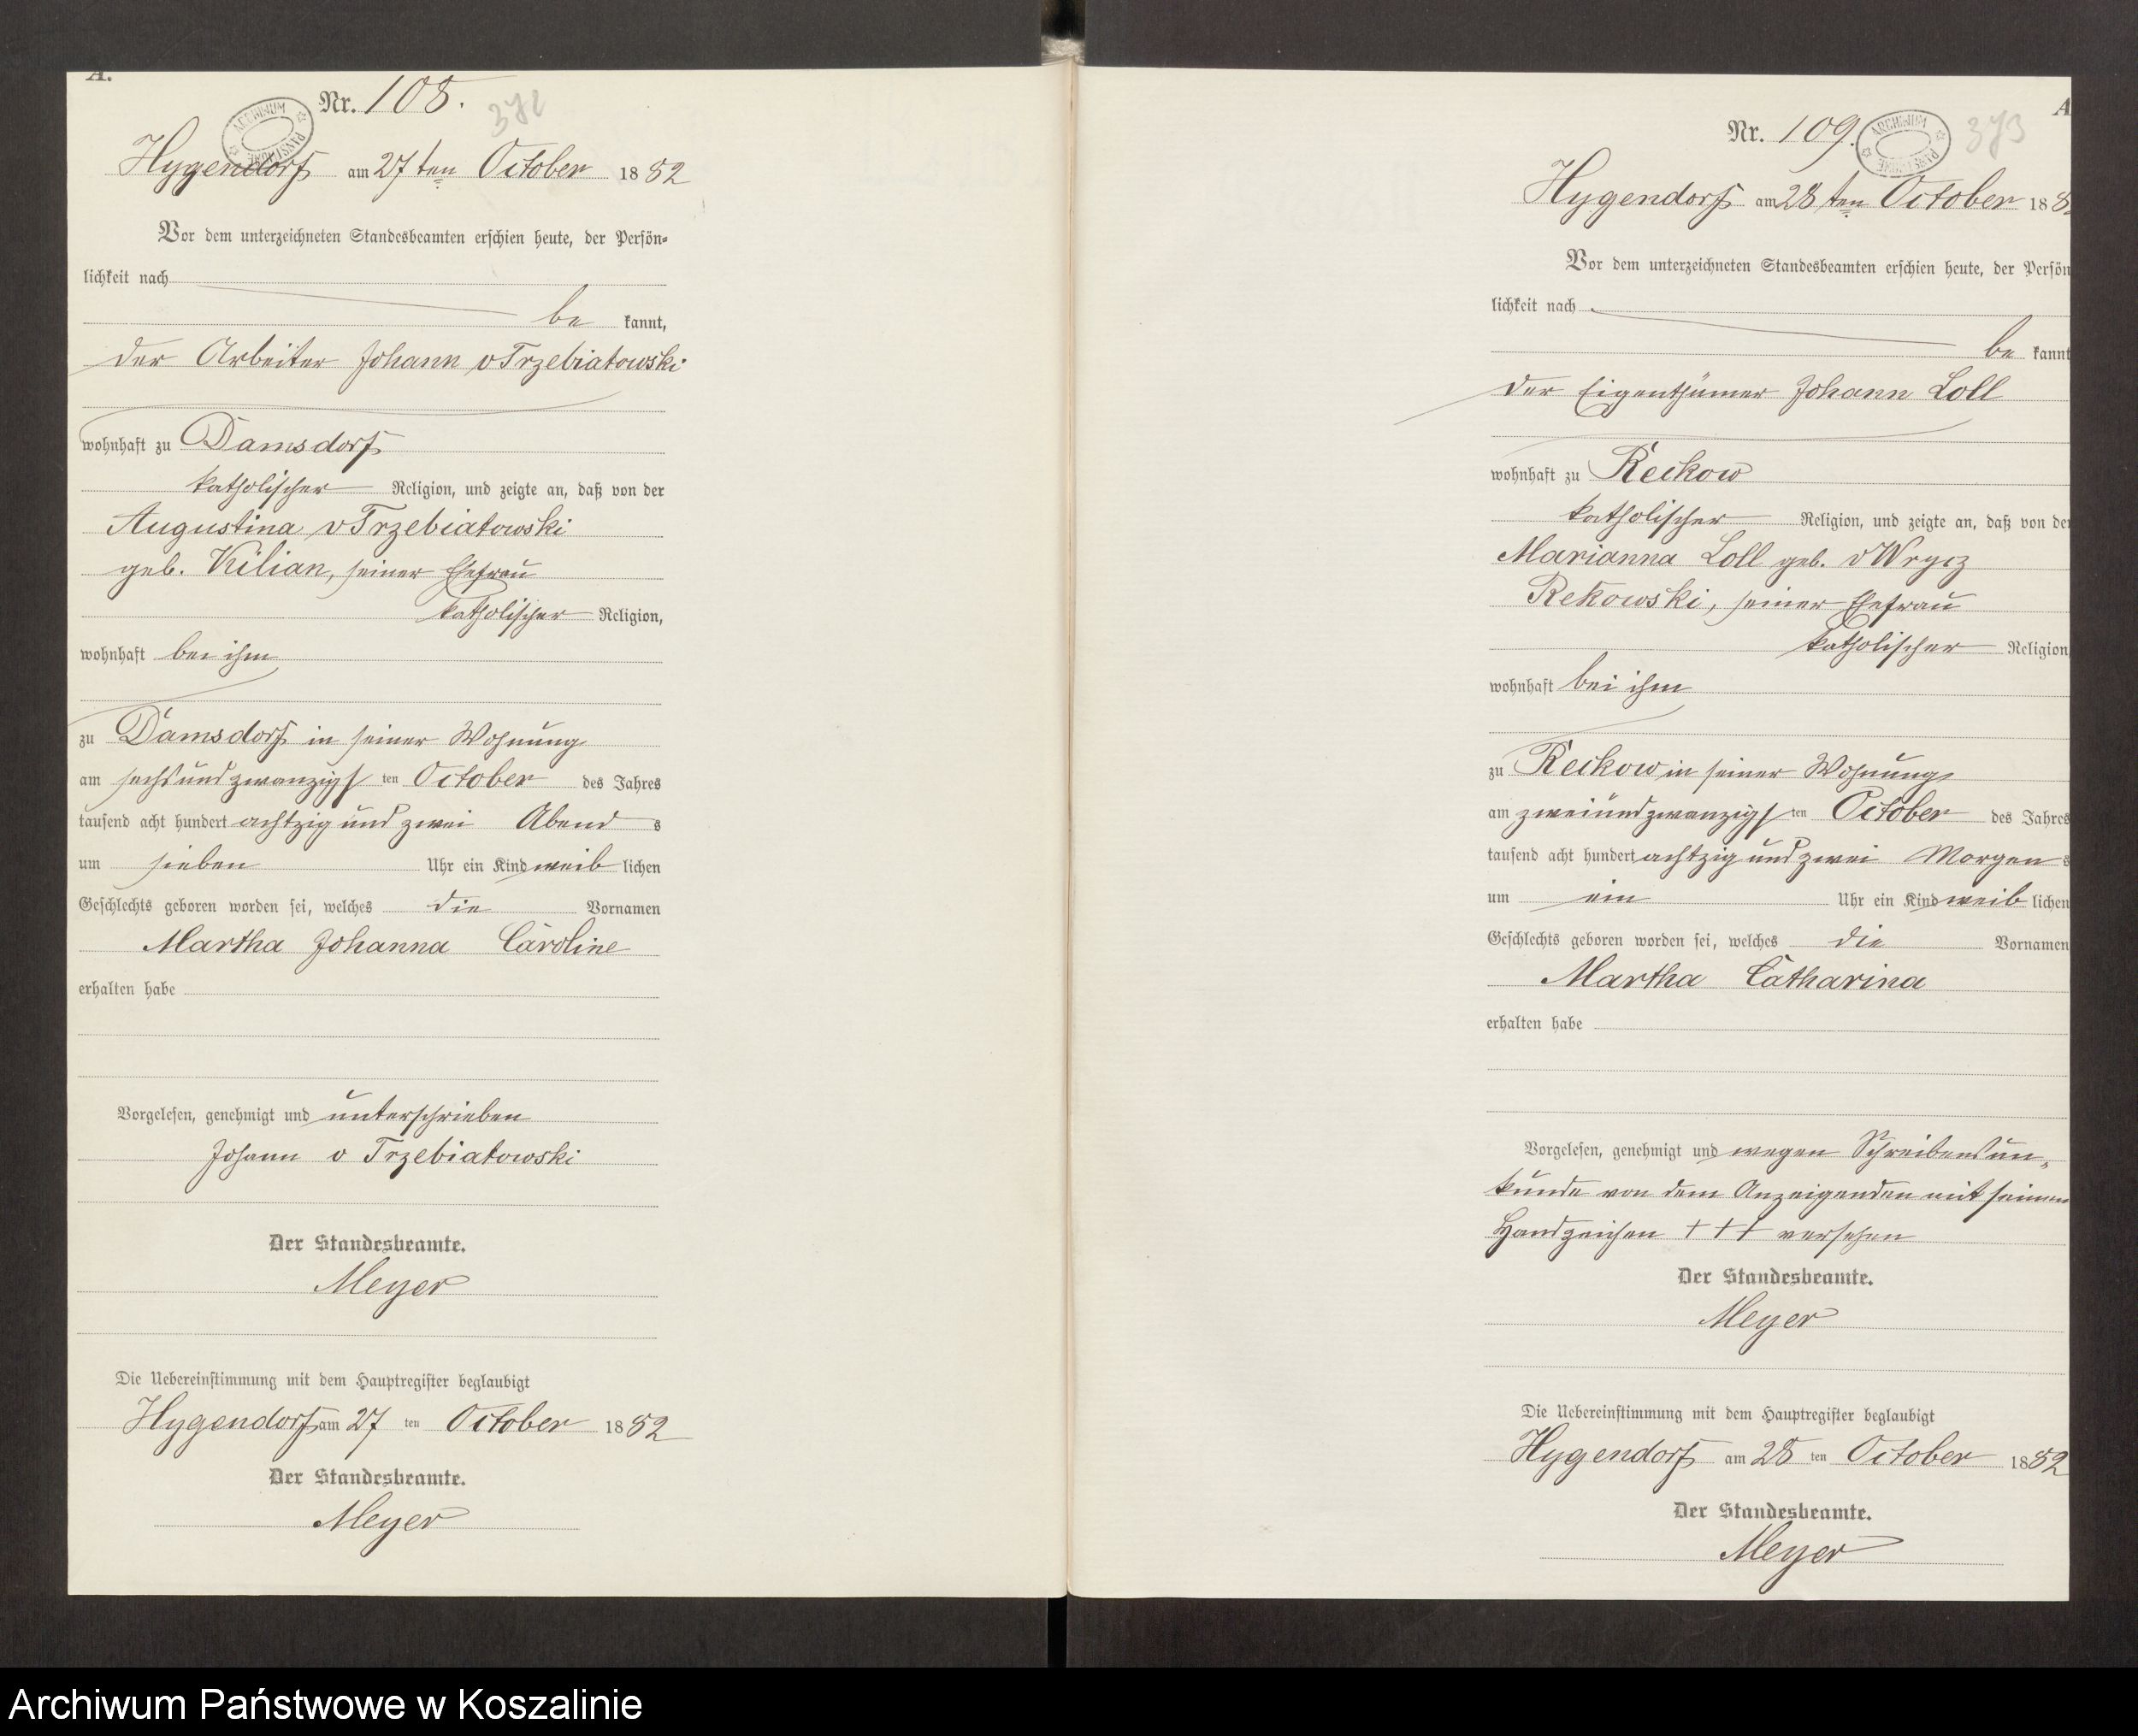 A.
Nr. 108.
372
ARCHIWUM
Hygendorf am 27ten October 1882
Vor dem unterzeichneten Standesbeamten erschien heute, der Persön-
lichkeit nach
be kannt,
der Arbeiter Johann v Trzebiatowski
wohnhaft zu Damsdorf
katholischer Religion, und zeigte an, daß von der
Augustina v Trzebiatowski
geb. Kilian, seiner Ehefrau
katholischer Religion,
wohnhaft bei ihm
zu Damsdorf in seiner Wohnung
am sechsundzwanzigs ten October des Jahres
tausend acht hundert achtzig und zwei Abend s
um sieben Uhr ein Kind weib lichen
Geschlechts geboren worden sei, welches die Vornamen
Martha Johanna Caroline
erhalten habe
Vorgelesen, genehmigt und unterschrieben
Johann v Trzebiatowski
Der Standesbeamte.
Meyer
Die Uebereinstimmung mit dem Hauptregister beglaubigt
Hygendorf am 27 ten October 1882
Der Standesbeamte.
Meyer
A
Nr. 109.
373
ARCHIWUM
Hygendorf am 28ten October 188
Vor dem unterzeichneten Standesbeamten erschien heute, der Persön
lichkeit nach
be kannt
der Eigenthümer Johann Loll
wohnhaft zu Reckow
katholischer Religion, und zeigte an, daß von der
Marianna Loll geb. v Wrycz
Rekowski, seiner Ehefrau
katholischer Religion
wohnhaft bei ihm
zu Reckow in seiner Wohnung
am zweiundzwanzigs ten October des Jahres
tausend acht hundert achtzig und zwei Morgen s
um ein Uhr ein Kind weib lichen
Geschlechts geboren worden sei, welches die Vornamen
Martha Catharina
erhalten habe
Vorgelesen, genehmigt und wegen Schreibensun-
kunde von dem Anzeigenden mit seinem
Handzeichen +++ versehen
Der Standesbeamte.
Meyer
Die Uebereinstimmung mit dem Hauptregister beglaubigt
Hygendorf am 28 ten October 1882
Der Standesbeamte.
Meyer
Archiwum Państwowe w Koszalinie